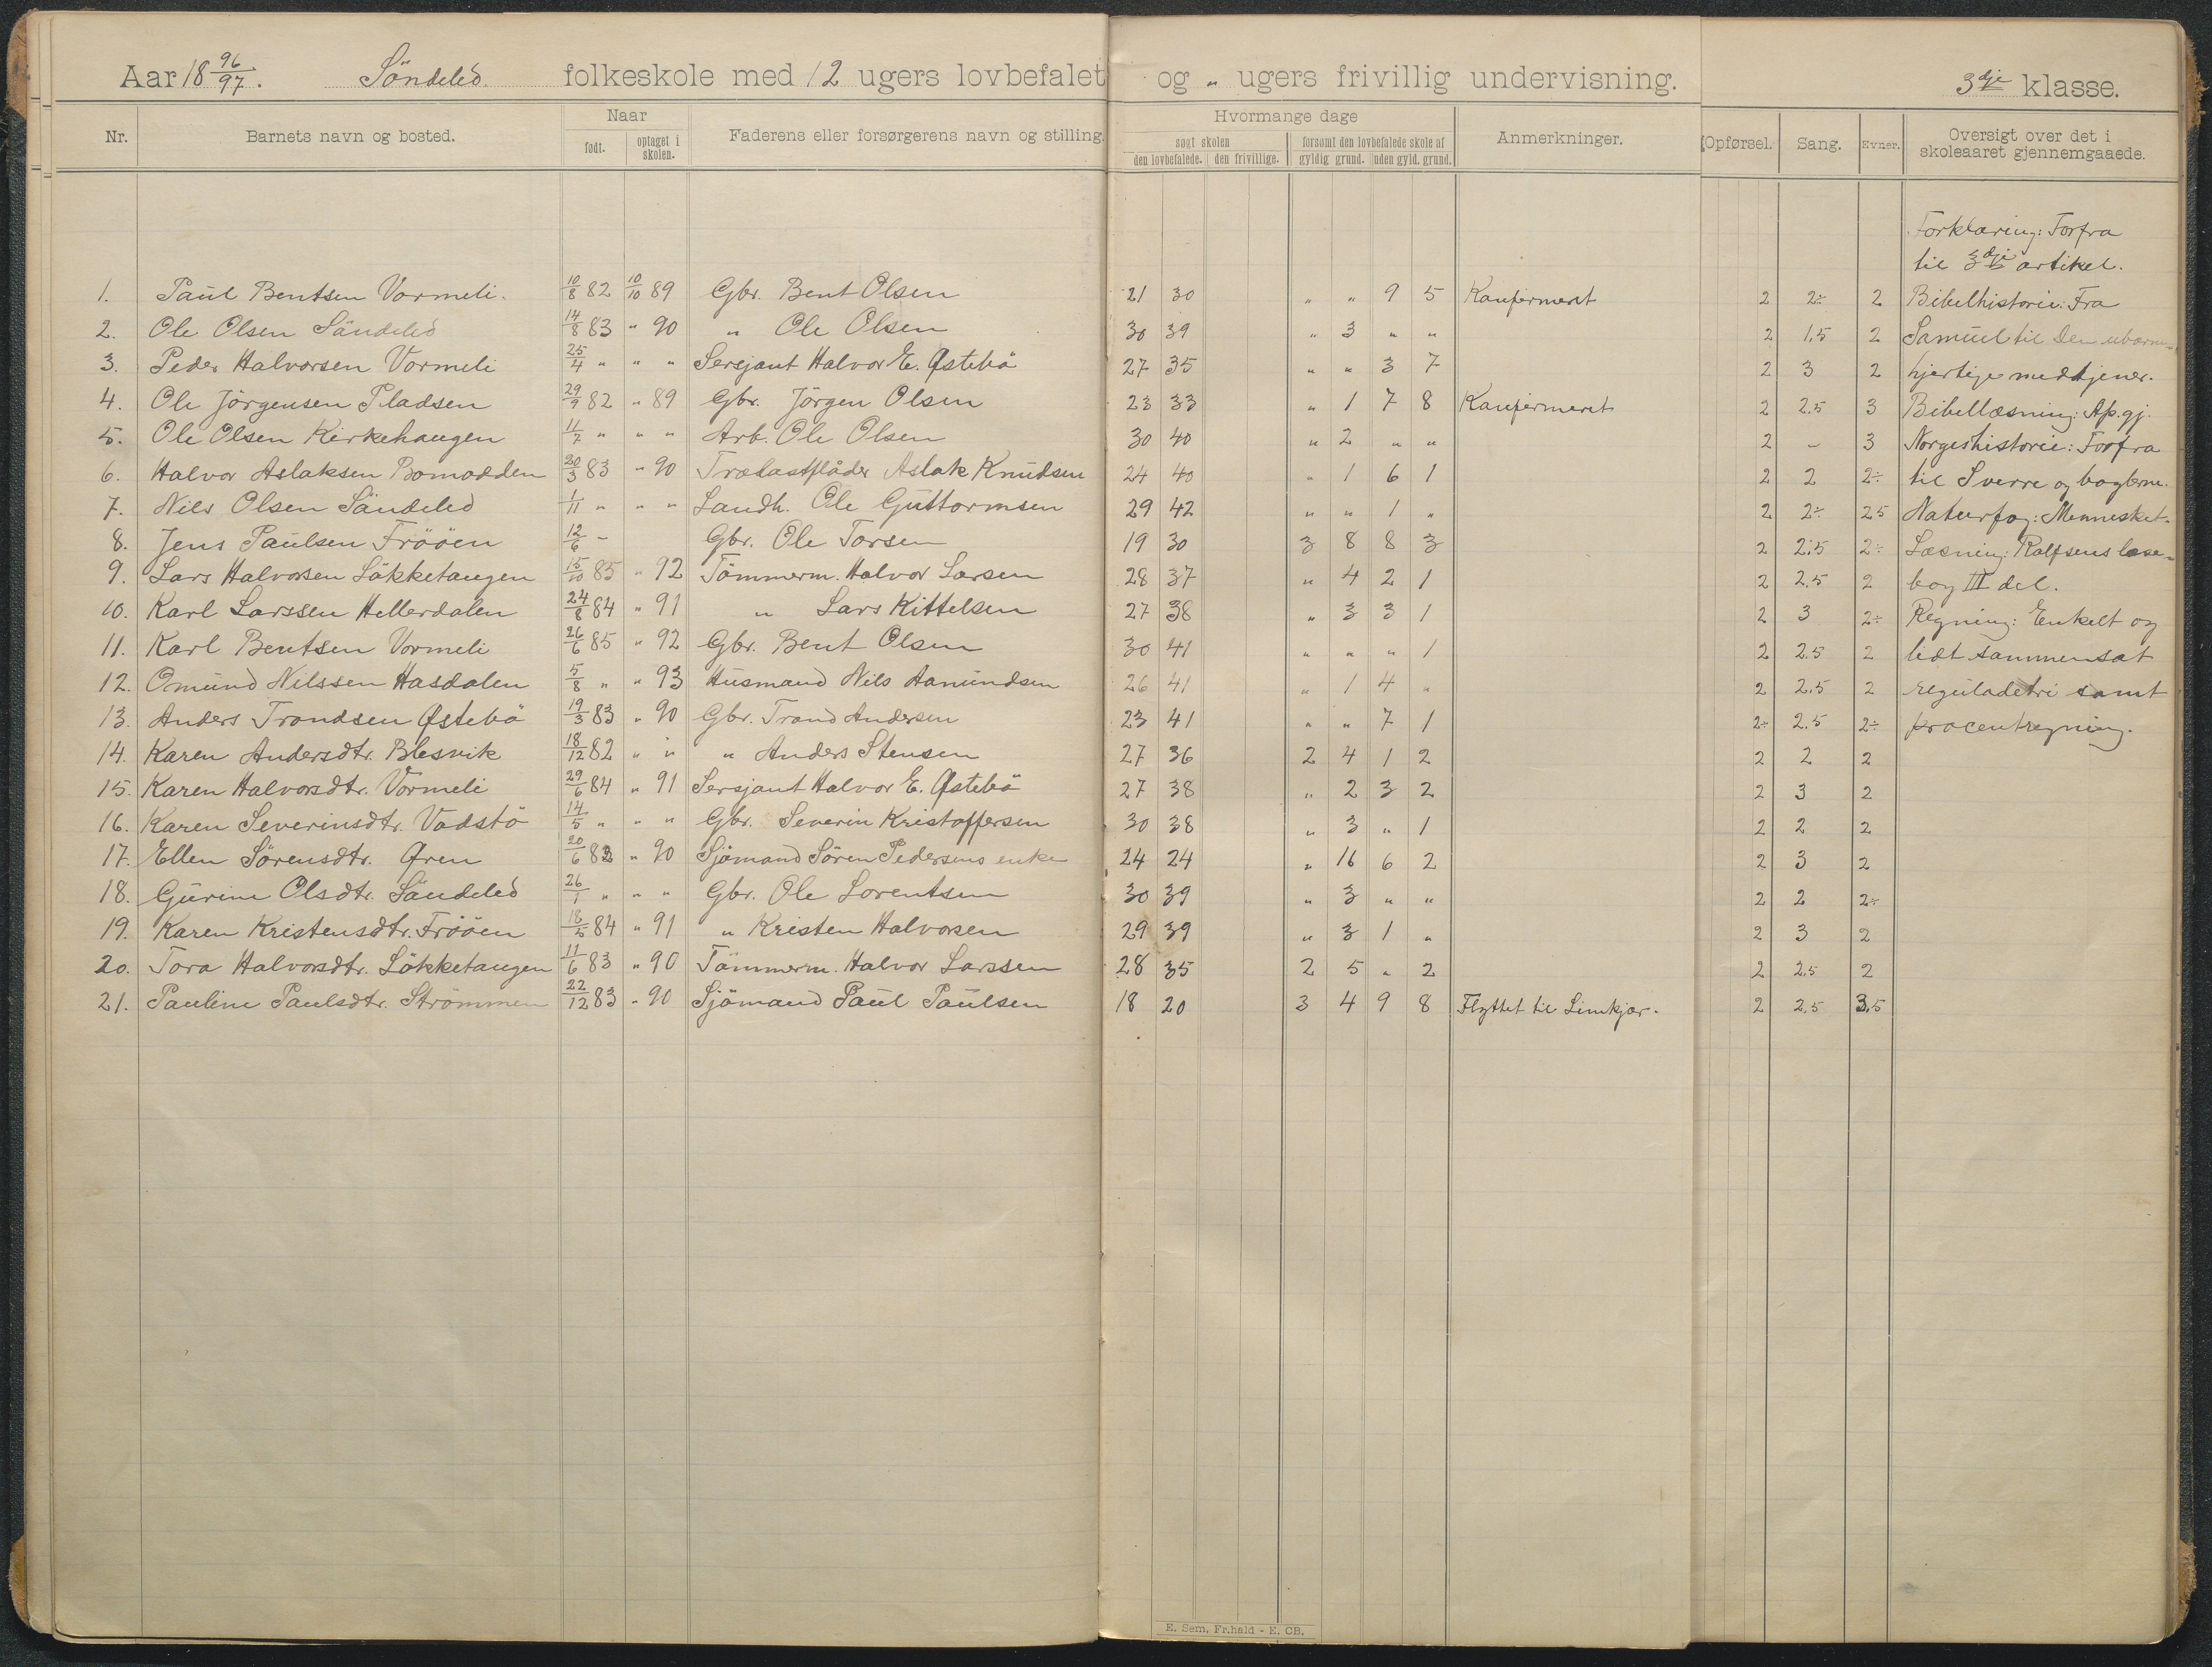 Aar 18 96/97. Söndeled folkeskole med 12 ugers lovbefalet og " ugers frivillig undervisning. 3dje klasse.
Nr. Barnets navn og bosted. Naar født. optaget i skolen. Faderens eller forsørgerens navn og stilling. Hvormange dage søgt skolen den lovbefalede. den frivillige. forsømt den lovbefalede skole af gyldig grund. uden gyld. grund. Anmerkninger. Opførsel. Sang. Evner. Oversigt over det i skoleaaret gjennemgaaede.
Forklaring: Forfra
til 3dje artikel.
1. Paul Bentsen Vormeli. 10/8 82 10/10 89 Gbr. Bent Olsen 21 30 " " 9 5 Konfirmeret 2 2÷ 2 Bibelhistorie: Fra
2. Ole Olsen Söndeled 14/8 83 " 90 " Ole Olsen 30 39 " 3 " " 2 1,5 2 Samuel til Den ubarm-
3. Peder Halvorsen Vormeli 25/4 " " " Sersjant Halvor E. Østebö 27 35 " " 3 7 2 3 2 hjertige medtjener.
4. Ole Jörgensen Pladsen 29/9 82 " 89 Gbr. Jörgen Olsen 23 33 " 1 7 8 Konfirmeret 2 2.5 3 Bibellæsning: Ap.gj.
5. Ole Olsen Kirkehaugen 11/7 " " " Arb. Ole Olsen 30 40 " 2 " " 2 – 3 Norgeshistorie: Forfra
6. Halvor Aslaksen Bomodden 20/3 83 " 90 Trælastflåder Aslak Knudsen 24 40 " 1 6 1 2 2 2÷ til Sverre og baglerne.
7. Nils Olsen Söndeled 1/11 " " " Landh. Ole Guttormsen 29 42 " " 1 " 2 2÷ 2.5 Naturfag: Mennesket.
8. Jens Paulsen Frööen 12/6 – Gbr. Ole Torsen 19 30 3 8 8 3 2 2.5 2÷ Læsning: Rolfsens læse-
9. Lars Halvorsen Lökketangen 15/10 85 " 92 Tömmerm. Halvor Larsen 28 37 " 4 2 1 2 2.5 2 bog III del.
10. Karl Larssen Hellerdalen 24/8 84 " 91 " Lars Kittelsen 27 38 " 3 3 1 2 3 2÷ Regning: Enkelt og
11. Karl Bentsen Vormeli 26/6 85 " 92 Gbr. Bent Olsen 30 41 " " " 1 2 2.5 2 lidt sammensat
12. Omund Nilssen Hasdalen 5/8 " " 93 Husmand Nils Aanundsen 26 41 " 1 4 " 2 2.5 2 reguladetri samt
13. Anders Trondsen Østebö 19/3 83 " 90 Gbr. Trond Andersen 23 41 " " 7 1 2÷ 2.5 2÷ procentregning.
14. Karen Andersdtr. Blesvik 18/12 82 " " " Anders Stensen 27 36 2 4 1 2 2 2 2
15. Karen Halvorsdtr. Vormeli 29/6 84 " 91 Sersjant Halvor E. Østebö 27 38 " 2 3 2 2 3 2
16. Karen Severinsdtr. Vadstö 14/5 " " " Gbr. Severin Kristoffersen 30 38 " 3 " 1 2 2 2
17. Ellen Sörensdtr. Øren 20/6 83 " 90 Sjömand Sören Pedersens enke 24 24 " 16 6 2 2 3 2
18. Gurine Olsdtr. Söndeled 26/1 " " " Gbr. Ole Lorentsen 30 39 " 3 " " 2 2 2÷
19. Karen Kristensdtr. Frööen 18/5 84 " 91 " Kristen Halvorsen 29 39 " 3 1 " 2 3 2
20. Tora Halvorsdtr. Lökketangen 11/6 83 " 90 Tömmerm. Halvor Larssen 28 35 2 5 " 2 2 2.5 2
21. Pauline Paulsdtr. Strömmen 22/12 83 " 90 Sjömand Paul Paulsen 18 20 3 4 9 8 Flyttet til Limkjær. 2 2.5 3.5
E. Sem, Fr.hald - E. CB.